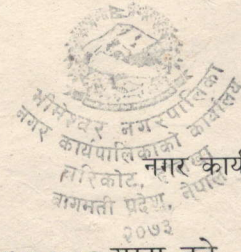 भीमेश्वर नगरपालिका
नगर कार्यपालिकाको कार्यालय
चरिकोट,
बागमती प्रदेश, नेपाल
२०७३
नगर कार्य